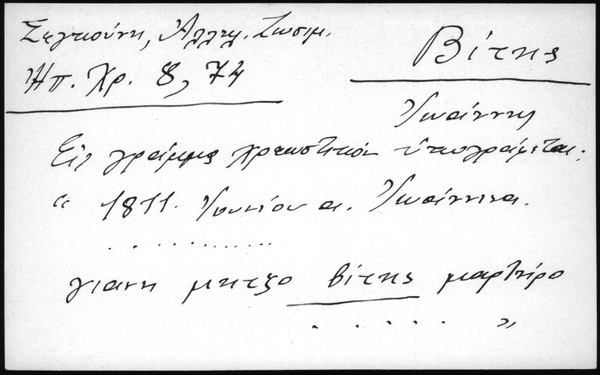 Σεγκούνη, Ἀλληλ. Ζωσιμ.
Ἠπ. Χρ. 8, 74
Βίτης
Ἰωάννης
Εἰς γράμμα χρεωστικόν ὑπογράφεται:
“ 1811. Ἰουνίου α. Ἰωάννινα.
. . . . . . . . . . .
γιανη μητζο βίτης μαρτηρο
. . . . . . ”